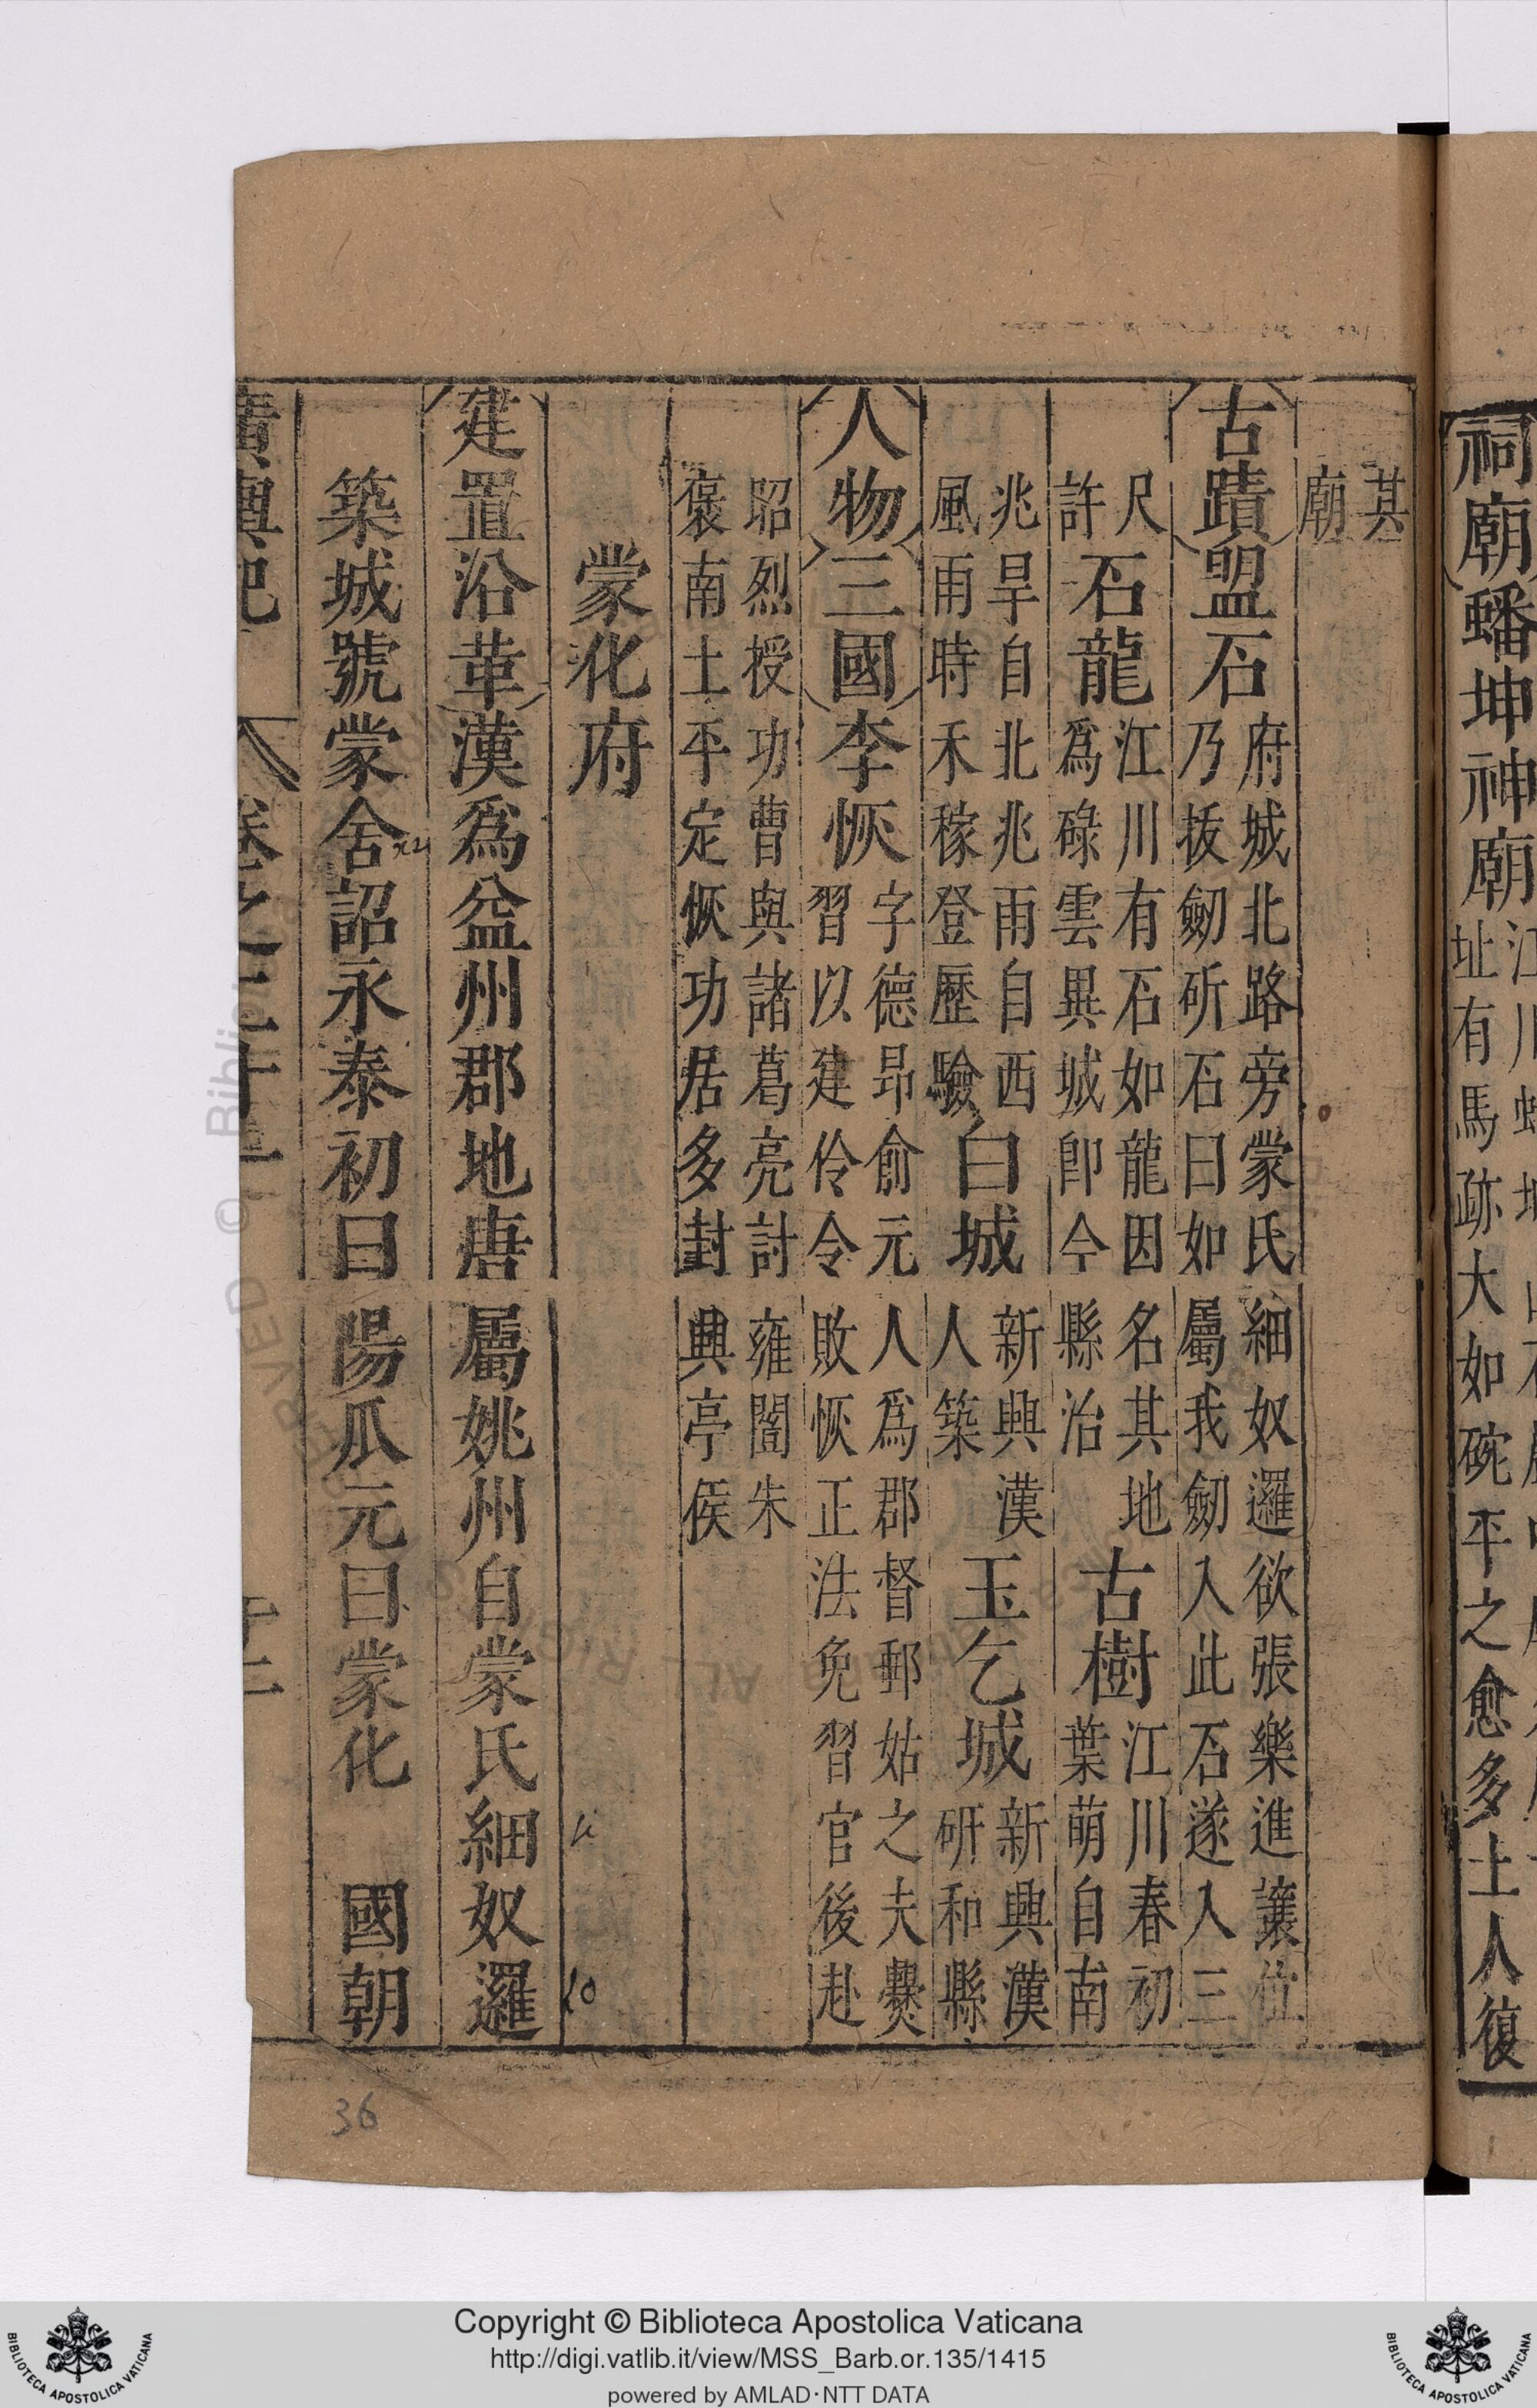 祠廟蟠坤神廟
址有馬跡大如碗平之愈多土人復
其
廟
古蹟盟石
府城北路旁蒙氏細奴邏欲張樂進讓位
乃拔劒斫石曰如屬我劒入此石遂入三
尺
許
石龍
江川有石如龍因名其地
爲碌雲異城卽今縣治
古樹
江川春初
葉萌自南
兆旱自北兆雨自西
風雨時禾稼登歷驗
白城
新興漢
人築
玉乞城
新興漢
研和縣
人物三國李恢
字德昂俞元人爲郡督郵姑之夫爨
習以建伶令敗恢正法免習官後赴
昭烈授功曹與諸葛亮討雍闓朱
褒南土平定恢功居多封興亭侯
蒙化府
建置沿革漢爲益州郡地唐屬姚州自蒙氏細奴邏
築城號蒙舍詔永泰初曰陽瓜元曰蒙化 國朝
廣輿記 卷之二十一 十二
36
Copyright © Biblioteca Apostolica Vaticana
http://digi.vatlib.it/view/MSS_Barb.or.135/1415
powered by AMLAD·NTT DATA
BIBLIOTECA APOSTOLICA VATICANA
BIBLIOTECA APOSTOLICA VATICANA